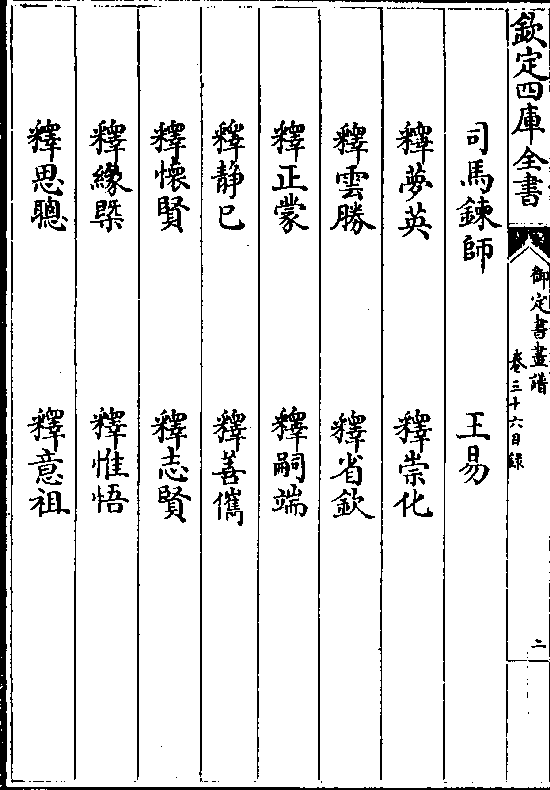 欽定四庫全書
御定書畫譜
卷三十六目錄
二
司馬鍊師 王易
釋夢英 釋崇化
釋雲勝 釋省欽
釋正蒙 釋嗣端
釋静已 釋善儁
釋懷賢 釋志賢
釋緣槩 釋惟悟
釋思聰 釋意祖